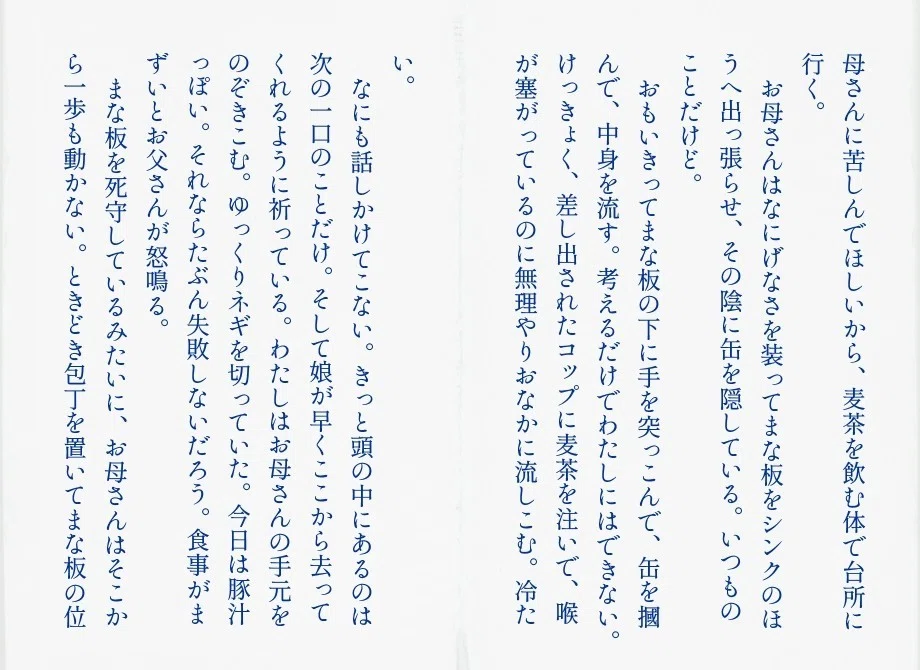 母さんに苦しんでほしいから、麦茶を飲む体で台所に
行く。
お母さんはなにげなさを装ってまな板をシンクのほ
うへ出っ張らせ、その陰に缶を隠している。いつもの
ことだけど。
おもいきってまな板の下に手を突っこんで、缶を摑
んで、中身を流す。考えるだけでわたしにはできない。
けっきょく、差し出されたコップに麦茶を注いで、喉
が塞がっているのに無理やりおなかに流しこむ。冷た
い。
なにも話しかけてこない。きっと頭の中にあるのは
次の一口のことだけ。そして娘が早くここから去って
くれるように祈っている。わたしはお母さんの手元を
のぞきこむ。ゆっくりネギを切っていた。今日は豚汁
っぽい。それならたぶん失敗しないだろう。食事がま
ずいとお父さんが怒鳴る。
まな板を死守しているみたいに、お母さんはそこか
ら一歩も動かない。ときどき包丁を置いてまな板の位